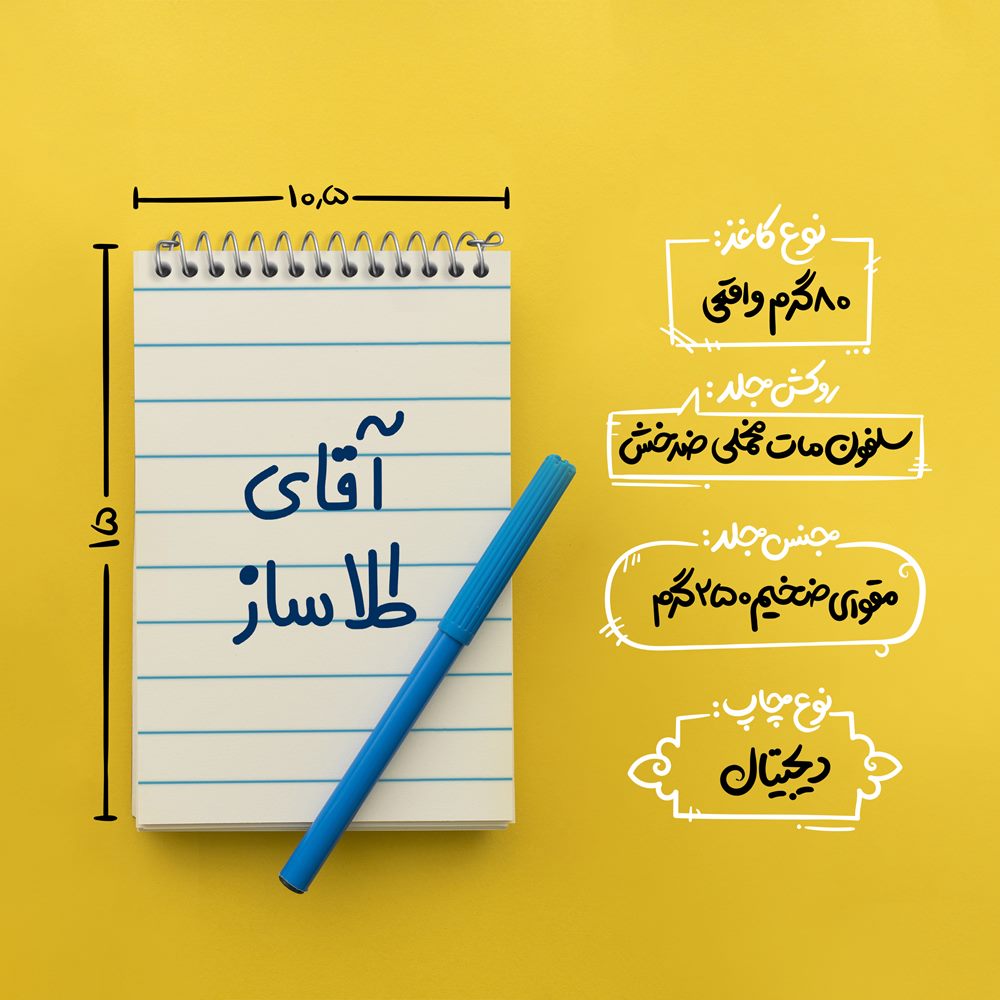 ۱۰٫۵
۱۵
آقای
طلاساز
نوع کاغذ:
۸۰گرم واقعی
روکش جلد:
سلفون مات مخملی ضدخش
جنس جلد:
مقوای ضخیم ۲۵۰گرم
نوع چاپ:
دیجیتال